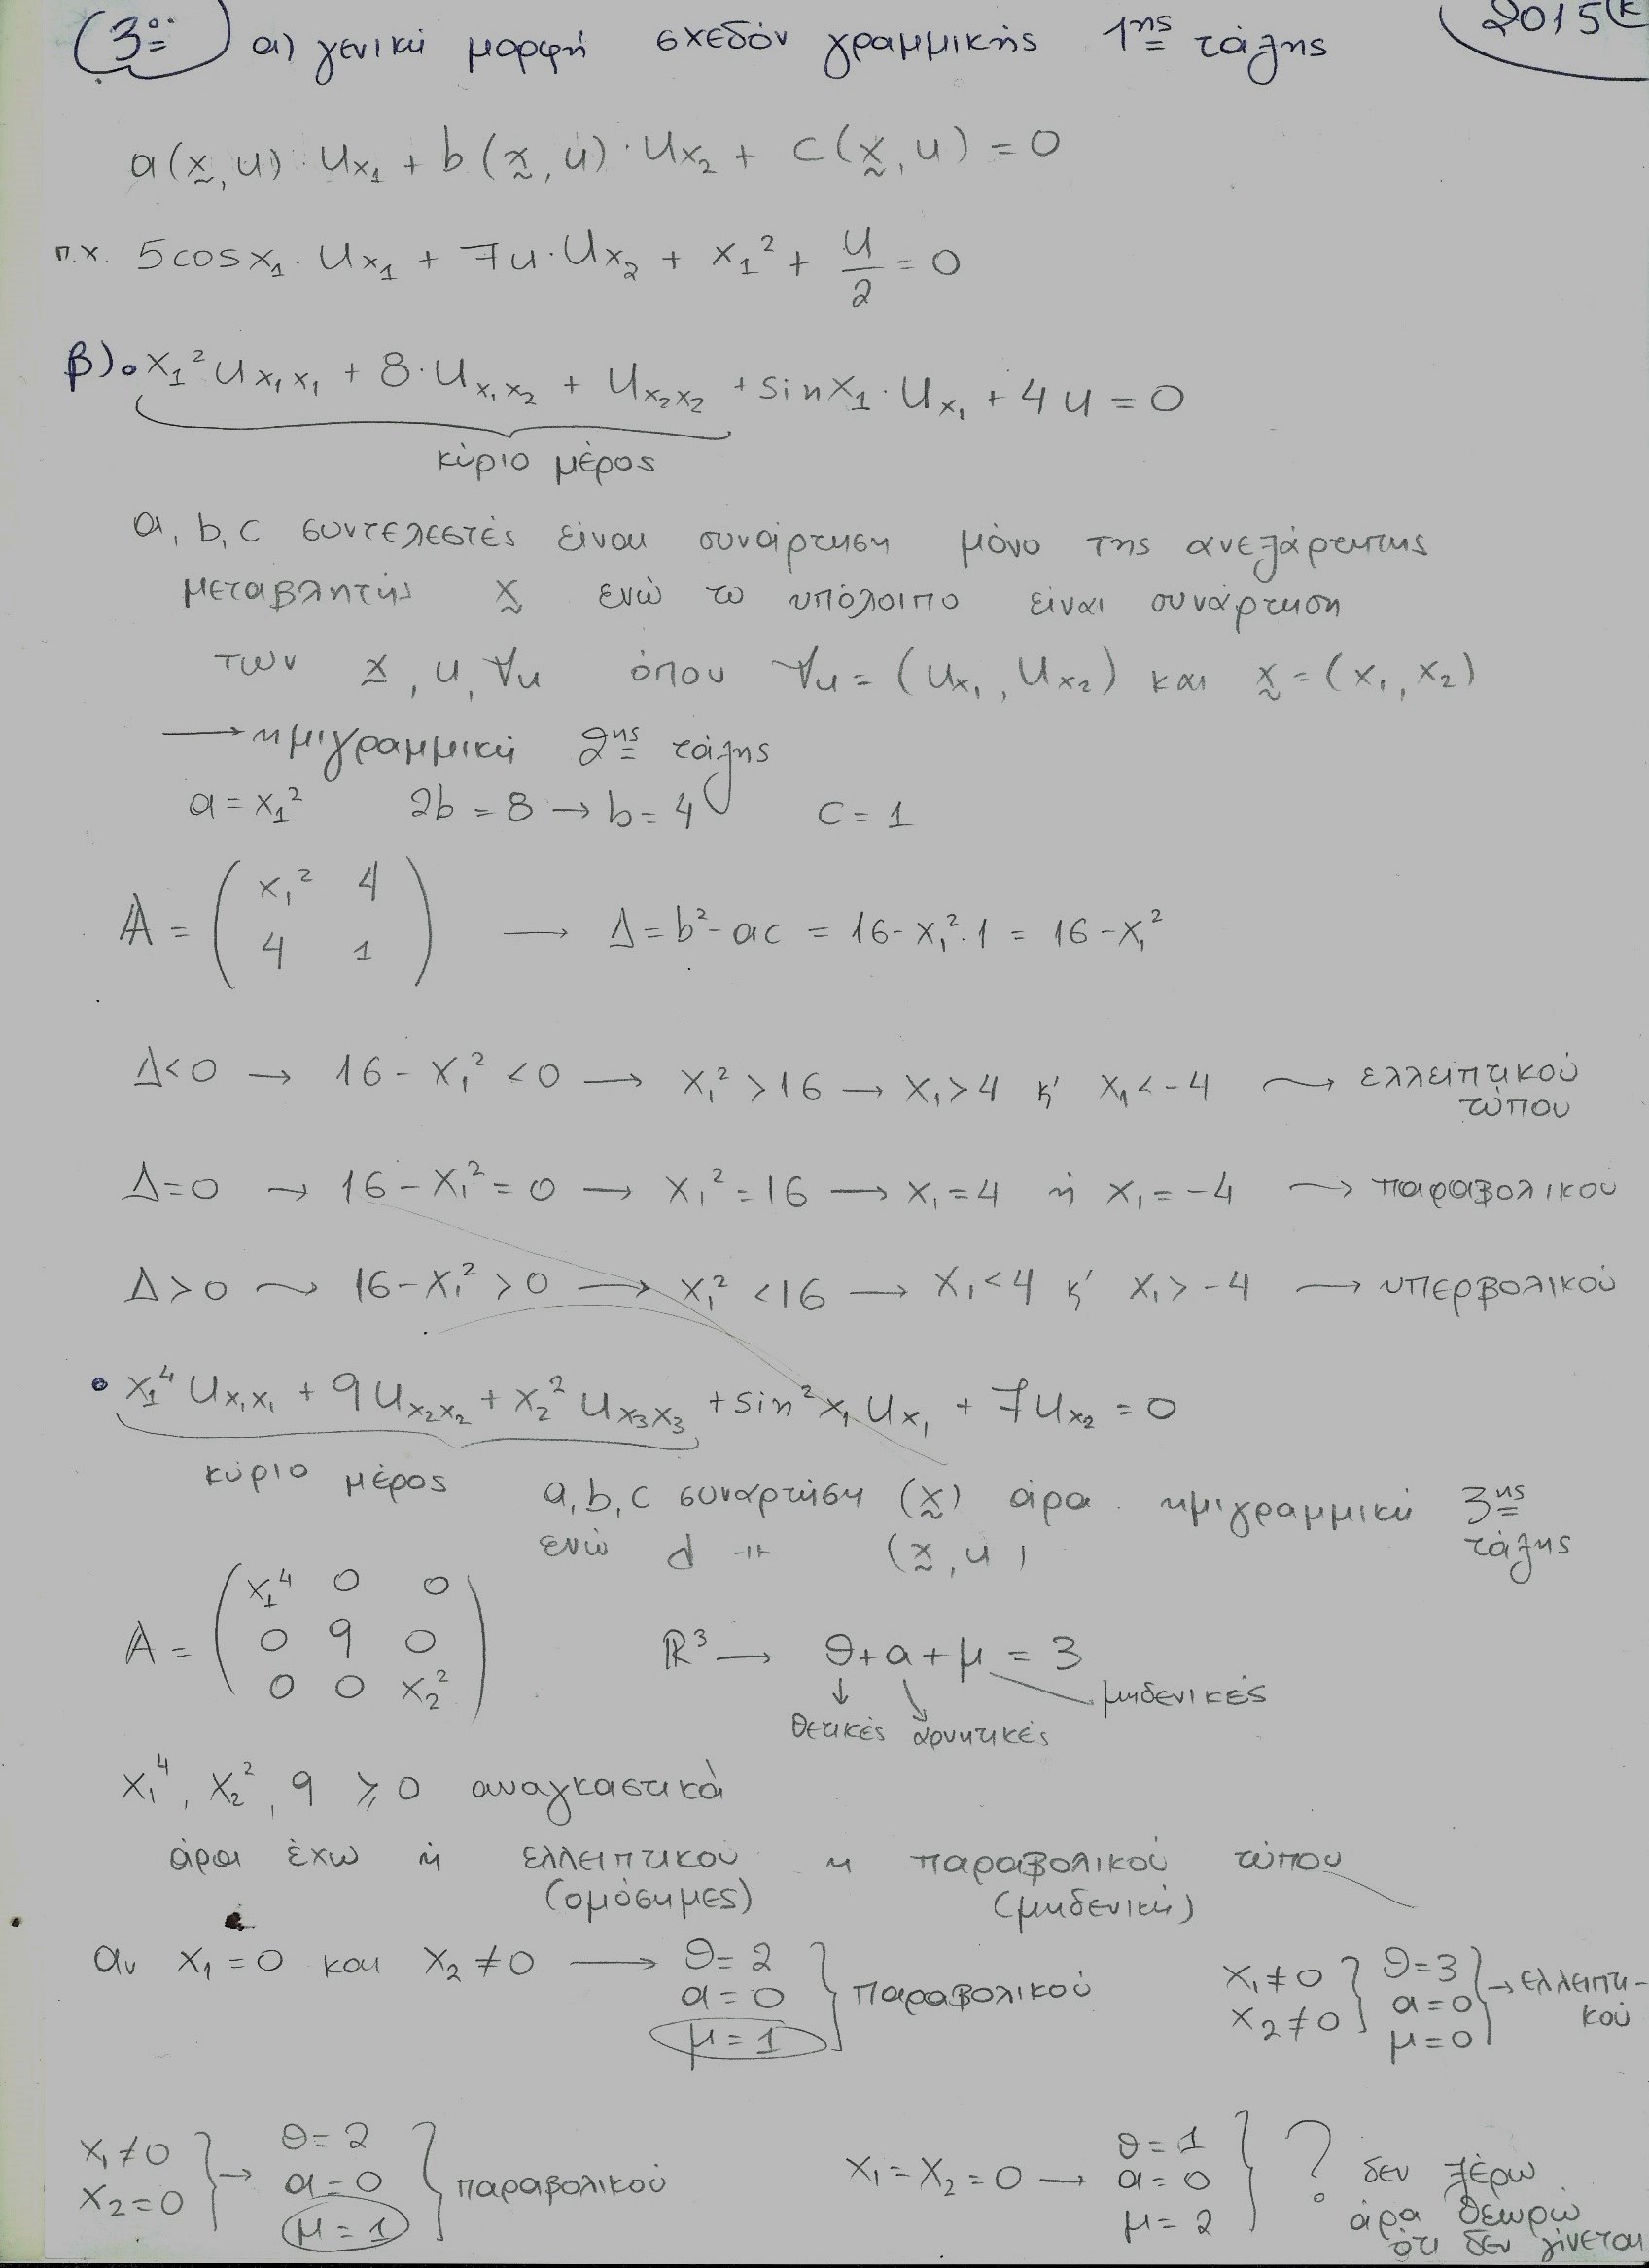 3ο: α) γενική μορφή σχεδόν γραμμικής 1ης τάξης
2015
a(x̰,u)·u_{x₁} + b(x̰,u)·u_{x₂} + c(x̰,u) = 0
π.χ. 5cosx₁·u_{x₁} + 7u·u_{x₂} + x₁² + u/2 = 0
β) • x₁²u_{x₁x₁} + 8·u_{x₁x₂} + u_{x₂x₂} + sinx₁·u_{x₁} + 4u = 0
κύριο μέρος
a, b, c συντελεστές είναι συνάρτηση μόνο της ανεξάρτητης
μεταβλητής x̰ ενώ το υπόλοιπο είναι συνάρτηση
των x̰, u, ∇u όπου ∇u = (u_{x₁}, u_{x₂}) και x̰ = (x₁, x₂)
→ ημιγραμμική 2ης τάξης
a = x₁² 2b = 8 → b = 4 c = 1
𝔸 = ( x₁² 4
4 1 ) → Δ = b² - ac = 16 - x₁²·1 = 16 - x₁²
Δ<0 → 16 - x₁² < 0 → x₁² > 16 → x₁ > 4 κ' x₁ < -4 → ελλειπτικού
τύπου
Δ=0 → 16 - x₁² = 0 → x₁² = 16 → x₁ = 4 ή x₁ = -4 → παραβολικού
Δ>0 → 16 - x₁² > 0 → x₁² < 16 → x₁ < 4 κ' x₁ > -4 → υπερβολικού
• x₁⁴u_{x₁x₁} + 9u_{x₂x₂} + x₂²u_{x₃x₃} + sin²x₁u_{x₁} + 7u_{x₂} = 0
κύριο μέρος a, b, c συναρτήση (x̰) άρα ημιγραμμική 3ης
τάξης
ενώ d -ιι- (x̰, u)
𝔸 = ( x₁⁴ 0 0
0 9 0
0 0 x₂² )
ℝ³ → θ + α + μ = 3
θετικές αρνητικές μηδενικές
x₁⁴, x₂², 9 ≥ 0 αναγκαστικά
άρα έχω ή ελλειπτικού ή παραβολικού τύπου
(ομόσημες) (μηδενική)
αν x₁ = 0 και x₂ ≠ 0 → θ = 2
α = 0
μ = 1 } παραβολικού
x₁ ≠ 0
x₂ ≠ 0 } θ = 3
α = 0
μ = 0 } → ελλειπτι-
κού
x₁ ≠ 0
x₂ = 0 } → θ = 2
α = 0
μ = 1 } παραβολικού
x₁ = x₂ = 0 → θ = 1
α = 0
μ = 2 } ? δεν ξέρω
άρα θεωρώ
ότι δεν γίνεται